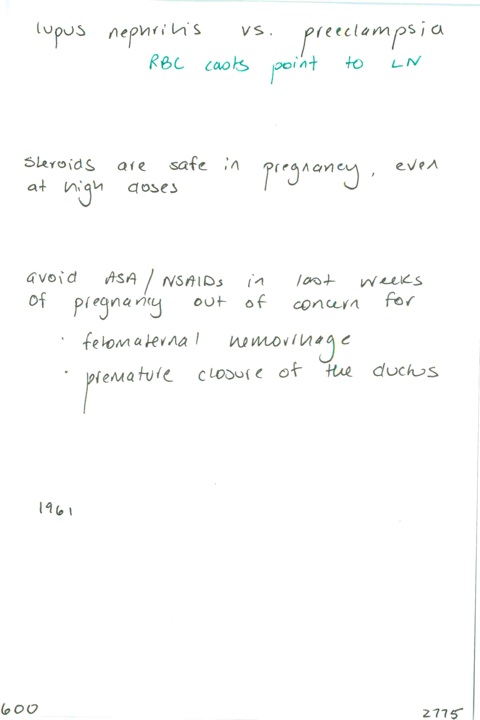 lupus nephritis vs. preeclampsia
RBC casts point to LN
steroids are safe in pregnancy, even
at high doses
avoid ASA / NSAIDs in last weeks
of pregnancy out of concern for
· fetomaternal hemorrhage
· premature closure of the ductus
1961
600
2775